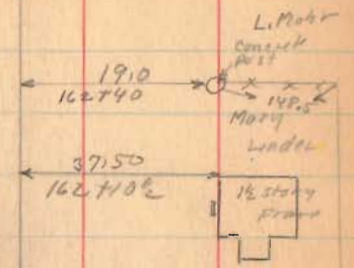 L. Mohr
Concrete
Post
19.0
162+40
148.5
Mary
Linder
37.50
162+10
1½ story
Frame